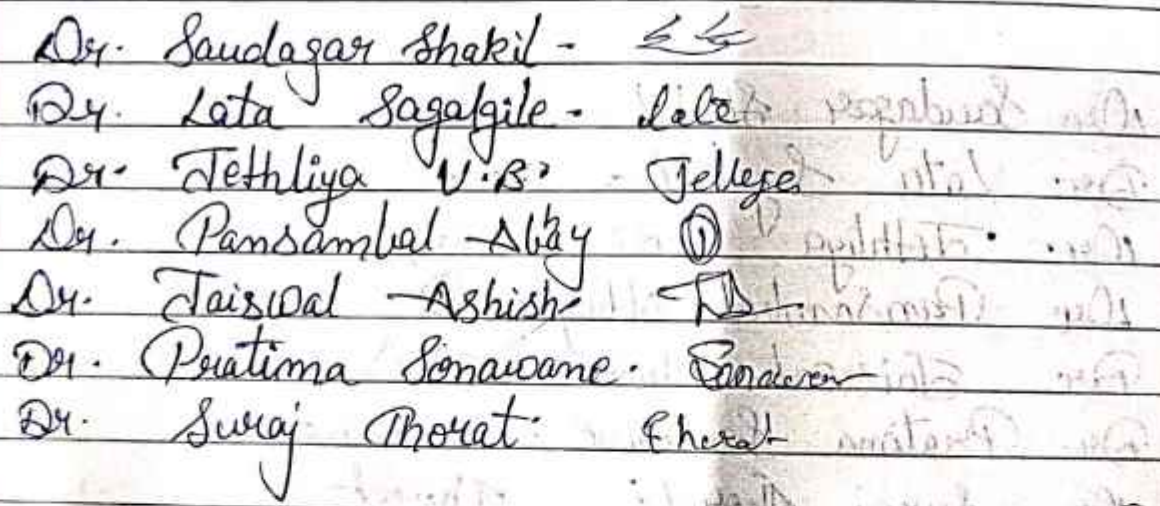 Dr. Saudagar Shakil -
Dr. Lata Sagalgile -
Dr. Jethliya V.B.
Dr. Pansambal Abhay
Dr. Jaiswal Ashish
Dr. Pratima Sonawane.
Dr. Suraj Thorat Thorat